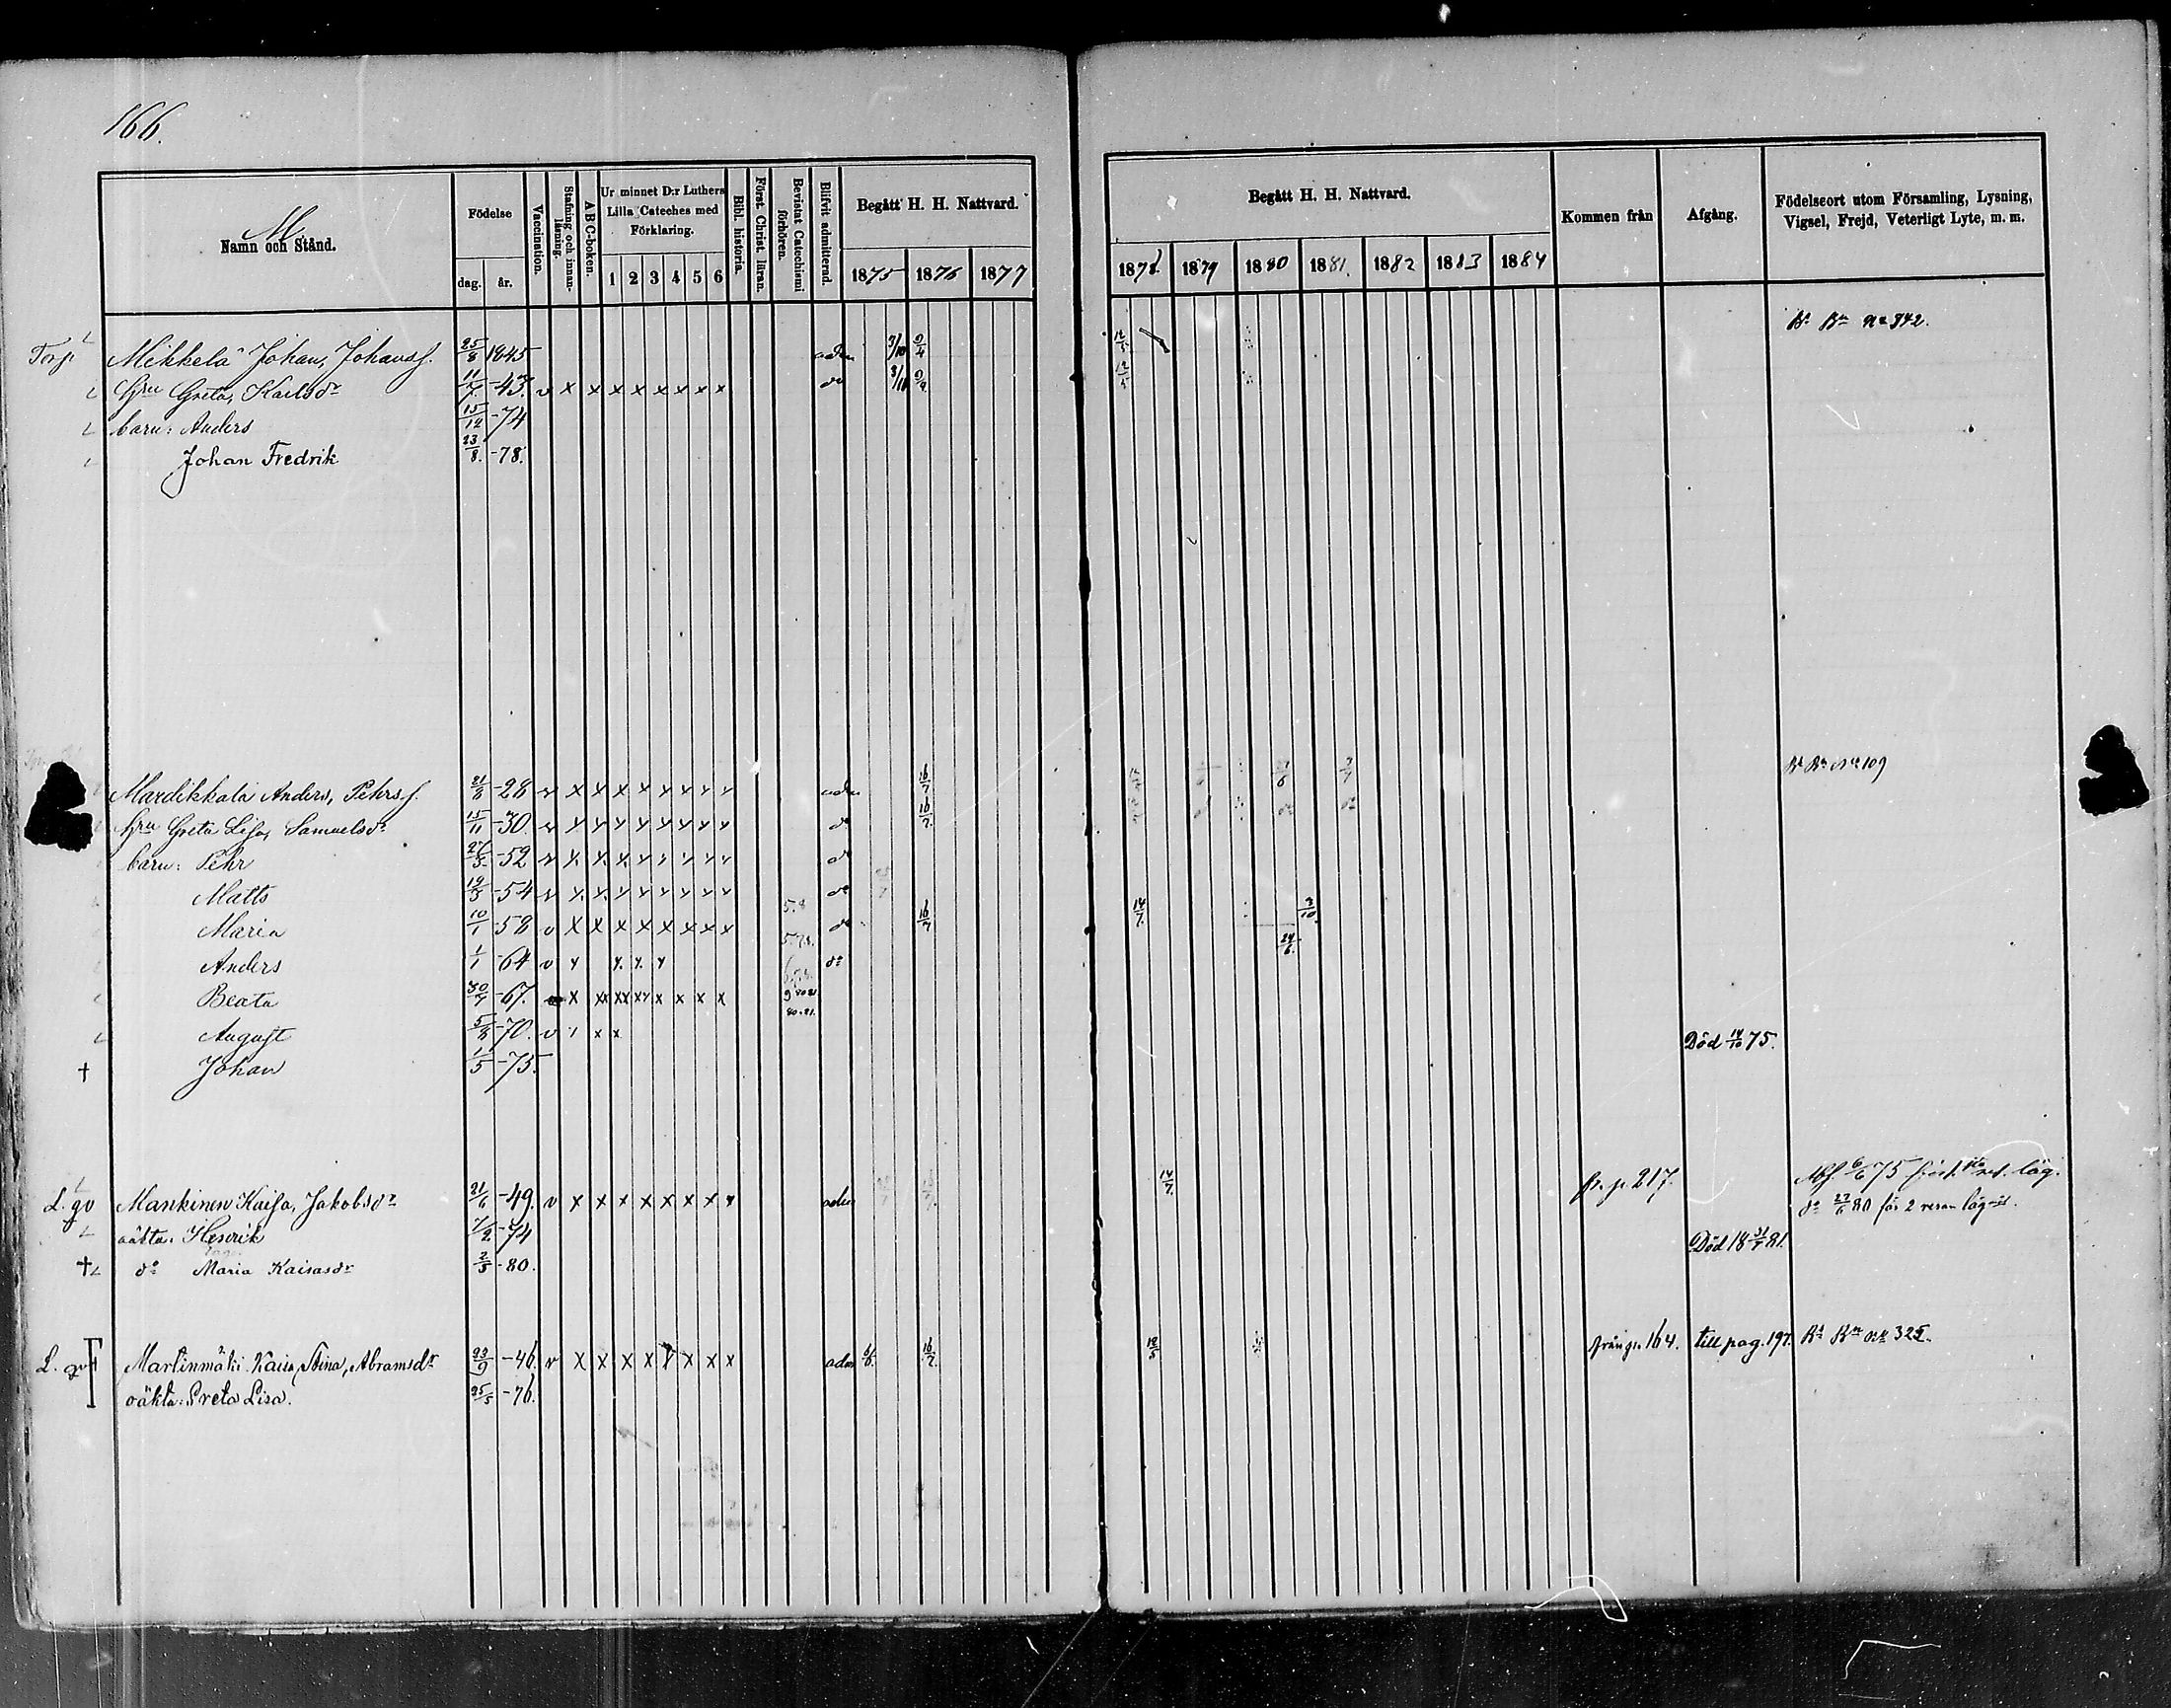 166.
M
Namn och Stånd.
Födelse
dag.
år.
Vaccination.
Stafning och innanläsning.
A B C-boken.
Ur minnet D:r Luthers Lilla Cateches med Förklaring.
1 2 3 4 5 6
Bibl. historia.
Först. Christ. läran.
Bevistat Catechismi förhören.
Blifvit admitterad.
Begått H. H. Nattvard.
1875 1876 1877
Begått H. H. Nattvard.
1878 1879 1880 1881. 1882 1883 1884
Kommen från
Afgång.
Födelseort utom Församling, Lysning, Vigsel, Frejd, Veterligt Lyte, m. m.
Torp. Mikkelä Johan, Johanss. 25/8 1845 adm 3/10 9/4 12/5 842.
Hru Greta, Karlsdr 11/7 -43. v x x x x x x x x do 3/10 9/4 12/5
barn: Anders 15/12 -74
Johan Fredrik 23/8. -78.
Mardikkala Anders, Pehrs. 21/8 -28 v x x x x x x x x adm 16/7 7/6 3/7 109
Hru Greta Lisa, Samuelsdr 15/11 -30 v x x x x x x x x do 16/7.
barn: Pehr -52 v x x x x x x x x do
Matts 19/3 -54 v x x x x x x x x do
Maria 10/1 58 v x x x x x x x x 5.8 do 16/7 14/7. 3/10.
Anders 1/1 -64 v x x. x. x 57.8. do 24/6.
Beata 30/7 -67. x xx xx xx x x x x 9 80 81
August 5/8 -70. v 1 x x 80.81.
† Johan 1/5 -75. Död 14/10 75.
L. gv Mankinen Kaisa, Jakobsdr 21/6 -49. v x x x x x x x x adm 14/7. fr. p. 217. Abs. 6/6 75 läg.
oäkta: Henrik 7/2 -74 do 27/6 80 för 2 resan läg-d.
† do Maria Kaisasdr 2/3 -80. Död 18 31/7 81.
L. gv Martinmäki Kaisa, Stina, Abramsdr 23/9 -46. v x x x x x x x x adm 6/6. 16/7. 12/5 från p. 164. till pag. 197. 325.
oäkta: Greta Lisa. 25/5 -76.